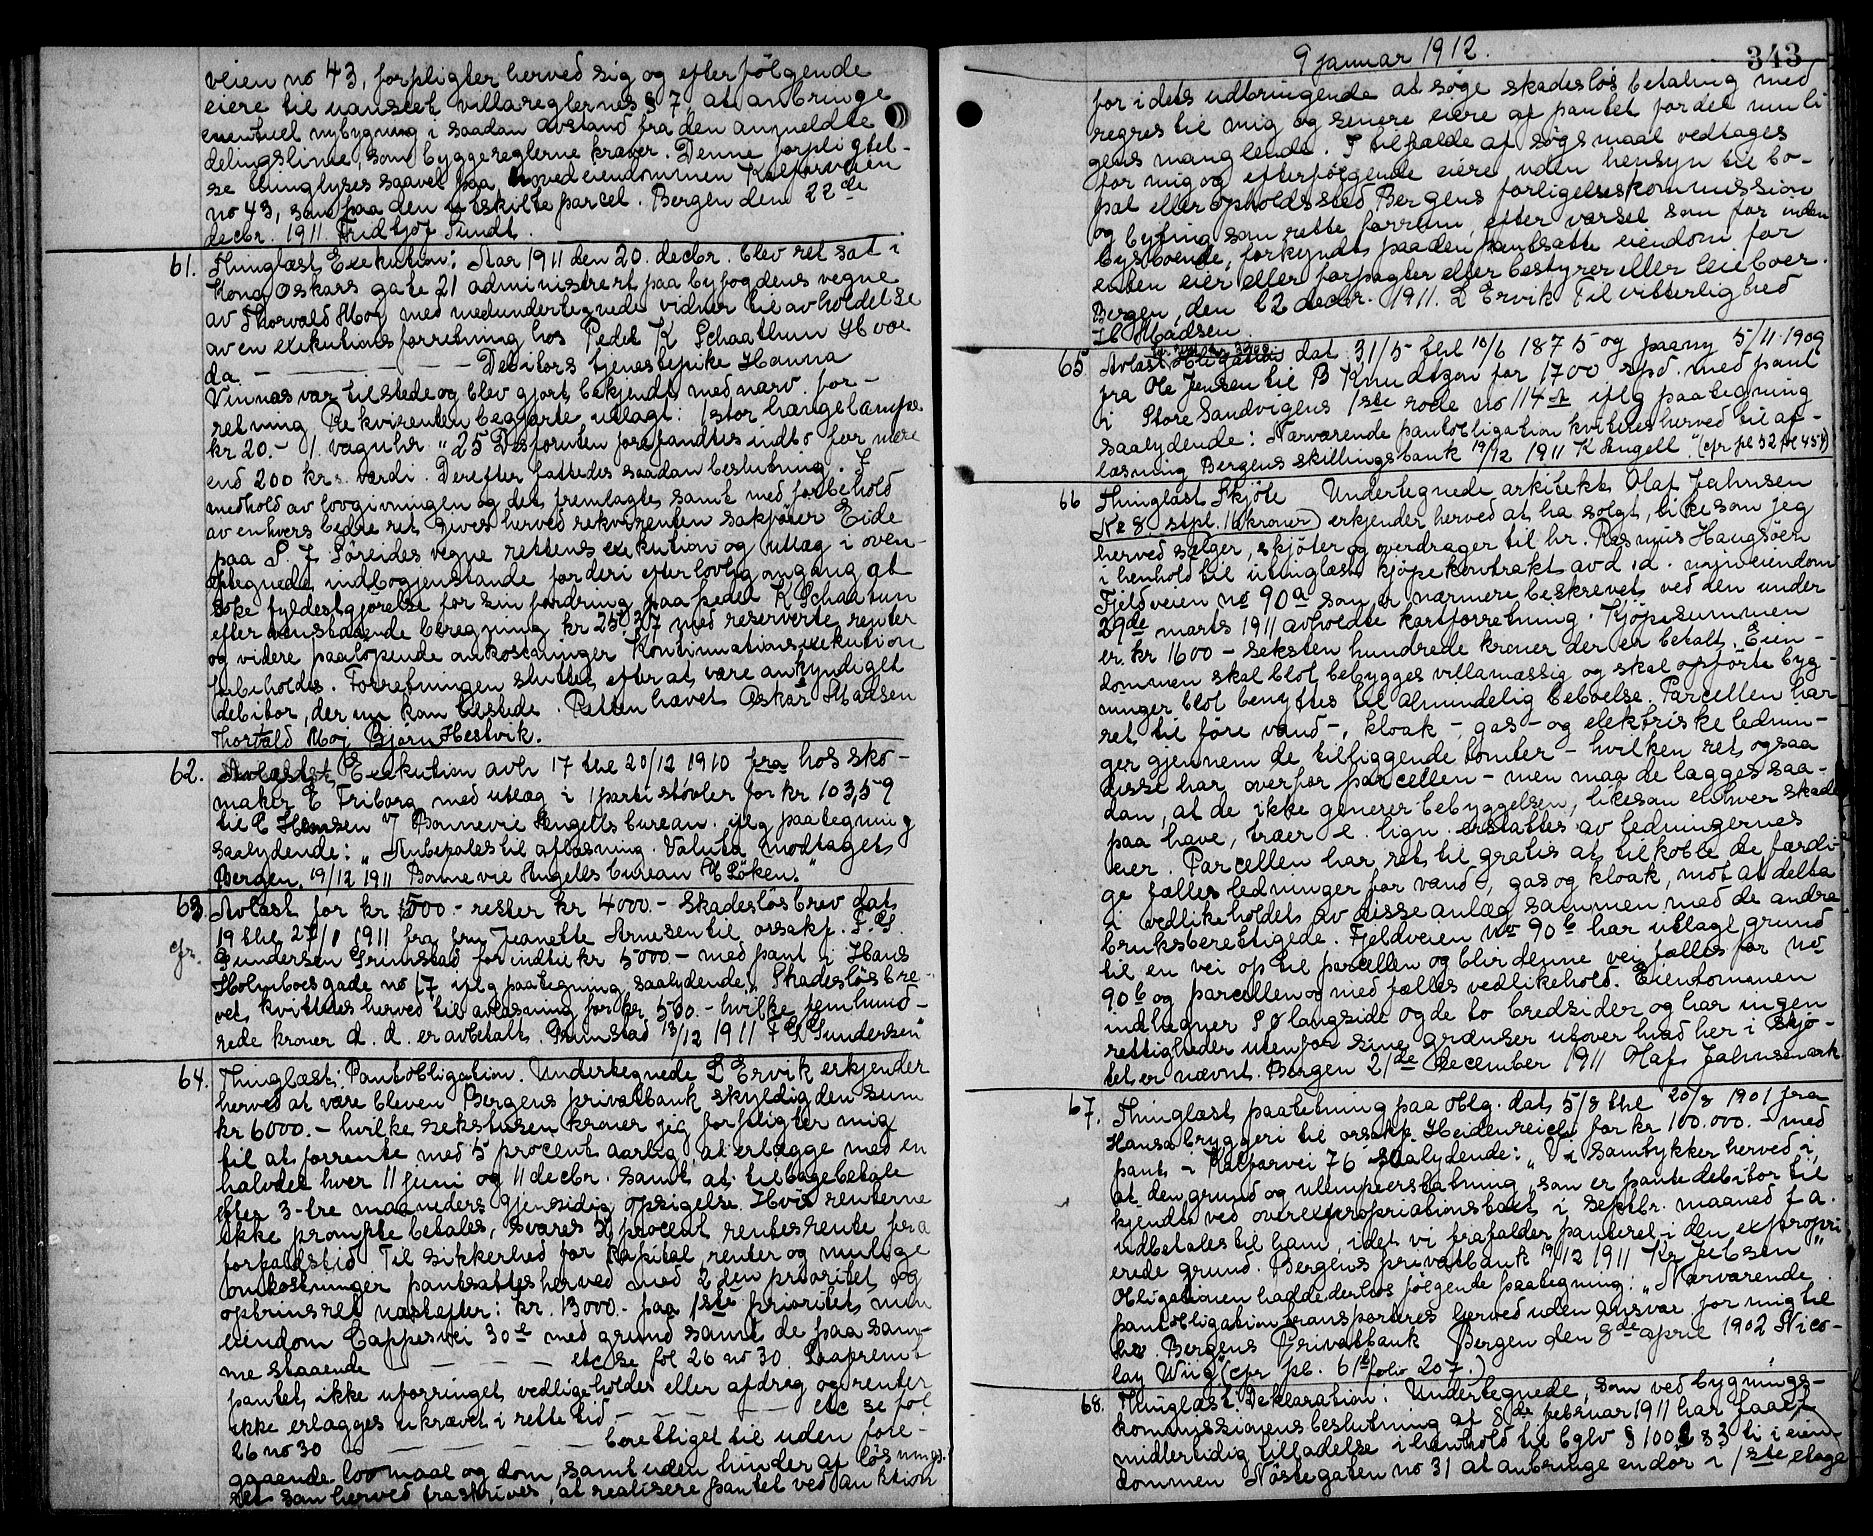 veien no 43, forpligter herved sig og efterfölgende
eiere til uanseet villareglernes § 7, at anbringe
eventuel nybygning i saadan avstand fra den anmeldte
delingslinie, som byggereglerne kræver. Denne forpligtel-
se thinglyses saavel paa hovedeiendommen Kalfarveien
no 43, som paa den utskilte parcel. Bergen den 22de
decbr. 1911. Fridtjof Sundt.
61. Thinglæst Exekution: Aar 1911 den 20. decbr. blev ret sat i
Kong Oskars gate 21 administrert paa byfogdens vegne
av Thorvald Moj med medundertegnede vidner til avholdelse
av en exekutionsforretning hos Peder K Schaathun Hvor
da — — — Debitors tjenestepike Hanna
Vinnæs var tilstede og blev gjort bekjendt med nærv. for-
retning Rekvirenten begjærte utlagt: 1 stor hængelampe
kr 20.- 1 væguhr " 25 Desforuten forefandtes indbo for mere
end 200 kr.s værdi. Derefter fattedes saadan beslutning. I
medhold av lovgivningen og det fremlagte samt med forbehold
av enhvers bedre ret gives herved rekvirenten sakförer Eide
paa S. J. Söreides vegne rettens exekution og utlæg i oven-
optegnede indbogjenstande for deri efter lovlig omgang at
söke fyldestgjörelse for sin fordring paa peder K Schaatun
efter ovenstaaende beregning kr 250,37 med reserverte renter
og videre paalöpende omkostninger Kontinuationsexekution
forbeholdes. Forretningen sluttet efter at være ankyndiget
debitor, der nu kom tilstede. Retten hævet Oskar Madsen
Thorvald Moj Bjørn Hestvik.
62. Avlæst Exekution avh 17 thl 20/12 1910 fra hos sko-
maker E Friborg med utlæg i 1 parti støvler for kr 103,59
til C Hansen v/ Bonnevie Angells bureau. iflg paategning
saalydende: „Anbefales til aflæsning. Valuta modtaget
Bergen, 19/12 1911 Bonnevie Angells bureau H Löken."
63. Avlæst for kr 500.- rester kr 4000.- skadeslösbrev dat
19 thl 27/1 1911 fra fru Jeanette Arnesen til orsakf. F. G.
cfr. Gundersen Grimstad for indtil kr 5000.- med pant i Hans
Holmboesgade no 17 iflg paategning saalydende „Skadeslösbre-
vet kvitteres herved til avlæsning for kr. 500.- hvilke femhund-
rede kroner d. d. er avbetalt. Grimstad 18/12 1911 F G Gundersen"
64. Thinglæst. Pantobligation. Undertegnede L Ervik erkjender
herved at være bleven Bergens privatbank skyldig den sum
kr 6000.- hvilke sekstusen kroner jeg forpligter mig
til at forrente med 5 procent aarlig at erlægge med en
halvdel hver 11 juni og 11 decbr. samt at tilbagebetale
efter 3-tre maaneders gjensidig opsigelse. Hvis renterne
ikke prompte betales, svares procent rentesrente fra
forfaldstid. Til sikkerhed for kapital renter og mulige
omkostninger pantsættes herved med 2den prioritet og
optrinsret næstefter: kr. 13000.- paa 1ste prioritet min
eiendom Cappesvei 30c med grund samt de paa sam-
me staaende — — — etc se fol 26 no 30. Saafremt
pantet ikke uforringet vedligeholdes eller afdrag og renter
ikke erlægges ukrævet i rette tid — — — etc se fol
26 no 30 — — — berettiget til uden fore-
gaaende lovmaal og dom, samt uden hinder af lösnings-
ret som herved fraskrives, at realisere pantet ved auktion
9 januar 1912.
343
for i dets udbringende at söge skadeslös betaling med
regres til mig og senere eiere af pantet for det muli
gens manglende. I tilfælde af søgsmaal vedtages
for mig og efterfølgende eiere uden hensyn til bo-
pæl eller opholdssted Bergens forligelseskommission
og byting som rette forum, efter varsel som for inden
bysboende, forkyndt paa den pantsatte eiendom for
enten eier eller forpagter eller bestyrer eller leieboer.
Bergen, den 12 decbr. 1911. L Ervik Til vitterlighed
H Madsen.
65 Avlæst Obligation dat 31/5 thl 10/6 1875 og paany 5/11-1909
fra Ole Jensen til B Knudtzon for 1700 spd. med pant
i Store Sandvigens 1ste rode no 114 iflg paategning
saalydende: Nærværende pantobligation kviteres herved til af-
læsning Bergens skillingsbank 19/12 1911 K Angell" (cfr pl 52 fol 454)
66 Thinglæst Skjöte Undertegnede arkitekt Olaf Jahnsen
Kr 8. stpl. 16 kroner) erkjender herved at ha solgt, likesom jeg
herved sælger, skjöter og overdrager til hr. Rasmus Haugsöen
i henhold til utinglæst kjöpekontrakt av d. d. min eiendom
Fjeldveien no 90a som er nærmere beskrevet ved den under
29de marts 1911 avholdte kartforretning. Kjöpesummen
er kr 1600 - seksten hundrede kroner der er betalt. Eien-
dommen skal blot bebygges villamæssig og skal opförte byg-
ninger blot benyttes til almindelig beboelse. Parcellen har
ret til före vand-, kloak-, gas- og elektriske lednin-
ger gjennem de tilliggende tomter - hvilken ret ogsaa
disse har overfor parcellen - men maa de lægges saa-
dan, at de ikke generer bebyggelsen, likesom enhver skade
paa have, trær e. lign. erstattes av ledningernes
eier. Parcellen har ret til gratis at tilkoble de færdi-
ge fælles ledninger for vand, gas og kloak, mot at delta
i vedlikeholdet av disse anlæg sammen med de andre
bruksberettigede. Fjeldveien no 90b har utlagt grund
til en vei op til parcellen og blir denne vei fælles for no
90b og parcellen og med fælles vedlikehold. Eiendommen
indhegner S O langside og de to bredsider og har ingen
rettigheder utenfor sine grænser utover hvad her i skjö-
tet er nævnt. Bergen 21de December 1911 Olaf Jahnsen ark
67. Thinglæst paategning paa oblg. dat 5/8 thl 20/8 1901 fra
Hansa bryggeri til orsakf. Heidenreich for kr 100.000.- med
pant i Kalfarvei 76 saalydende: „Vi samtykker herved i,
at den grund og ulempeerstatning, som er pantedebitor til-
kjendt ved overexpropriationstaxt i septbr. maaned f. a.
udbetales til ham, idet vi frafalder panteret i den expropri
erede grund. Bergens privatbank 19/12 1911 Kr Jebsen"
Obligationen hadde derhos følgende paategning: „Nærværende
pantobligation transporteres herved uden ansvar for mig til
hr. Bergens Privatbank Bergen den 8de april 1902 Nico-
lay Wiig" (cfr pl. 61b folio 207.)
68. Thinglæst Deklaration: Undertegnede, som ved bygnings-
kommissionens beslutning af 8de februar 1911 har faaet
midlertidig tilladelse i henhold til bglv § 100 & 83 til i eien-
dommen Nöstegaten no 31 at anbringe en dör i 1ste etage